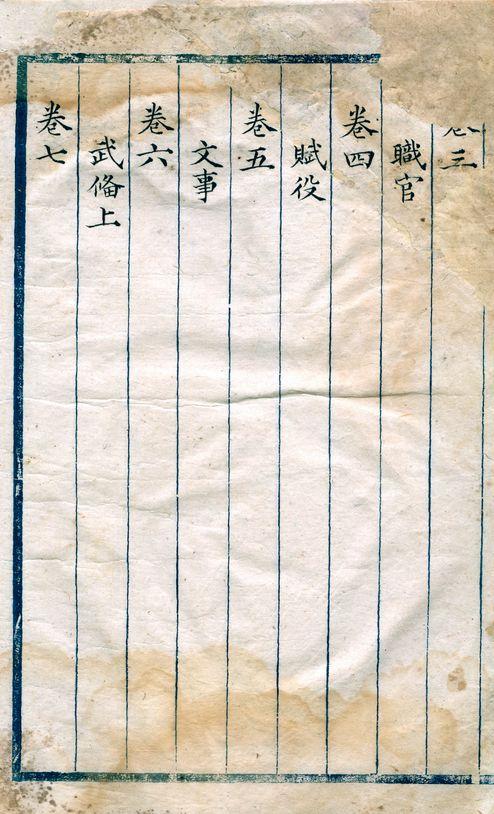 卷三
職官
卷四
賦役
卷五
文事
卷六
武備上
卷七